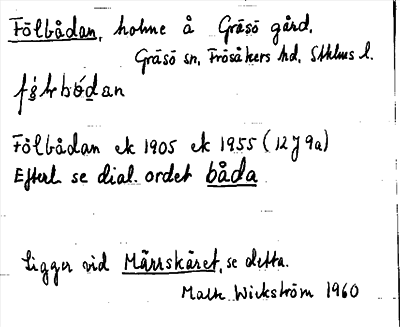 Fölbådan, holme å Gräsö gård,
Gräsö sn, Frösåkers hd, Sthlms l.
Fölbådan ek 1905 ek 1955 (12J 9a)
Efterl. se dial. ordet båda
Ligger vid Märrskäret, se detta.
Mats Wickström 1960